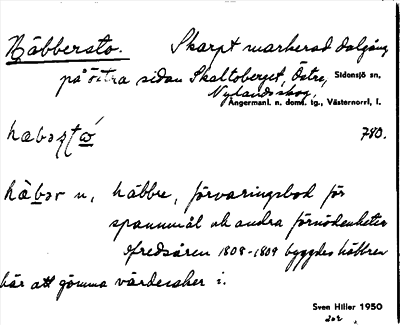 Häbbersto. Skarpt markerad dalgång
på östra sidan Skaltoberget, Östre, Sidensjö sn,
Nylandsskog, Ångermanl. n. doms. tg., Västernorrl, l.
780.
n, häbbre, förvaringsbod för
spannmål och andra förnödenheter
Ofredsåren 1808-1809 byggdes häbbren
här att gömma värdesaker i.
Sven Hiller 1950